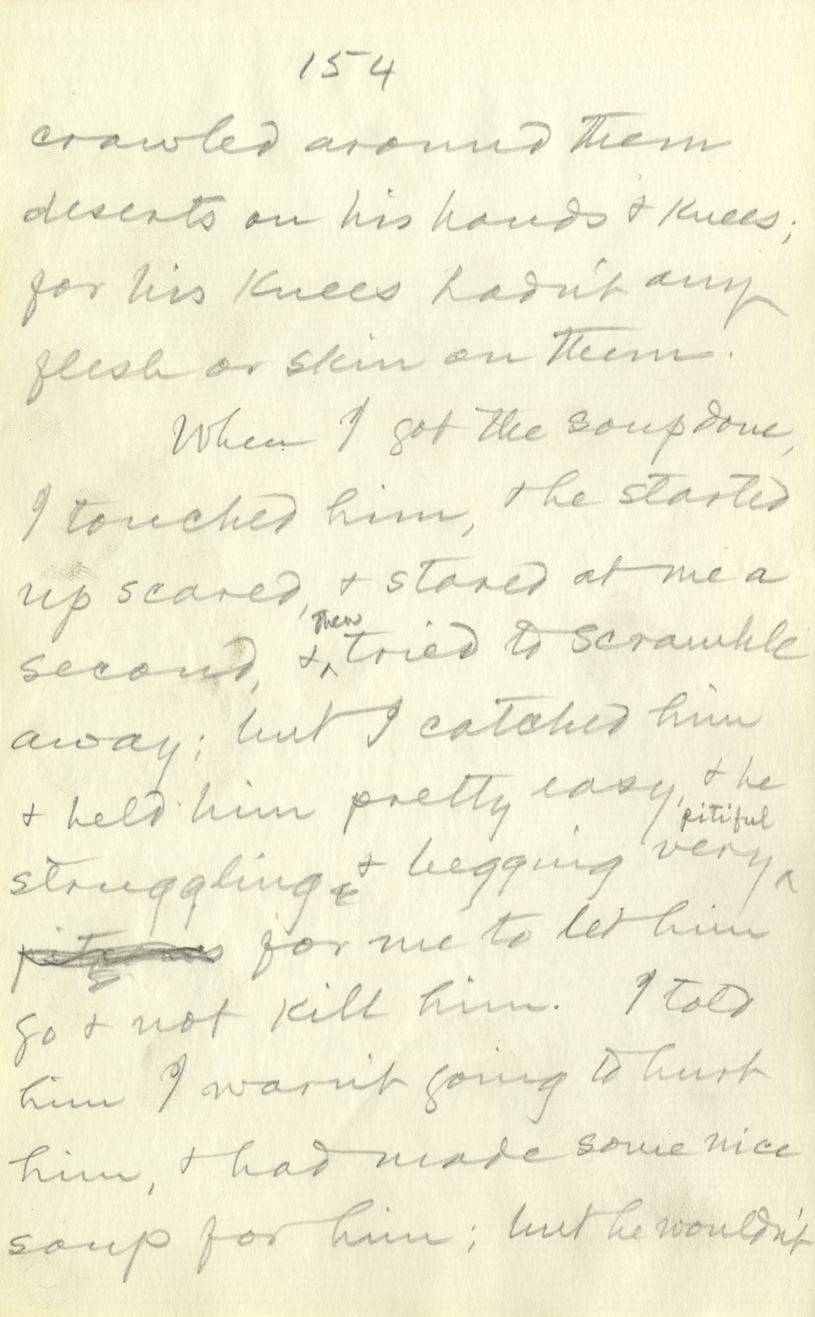 154
crawled around them
deserts on his hands & knees;
for his knees hadn't any
flesh or skin on them.
When I got the soup done,
I touched him, & he started
up scared, & stared at me a
second, & then tried to scrawhle
away; but I catched him
& held him pretty easy, & he
struggling & begging very pitiful
for me to let him
go & not kill him. I told
him I warn't going to hurt
him, & had made some nice
soup for him; but he wouldn't